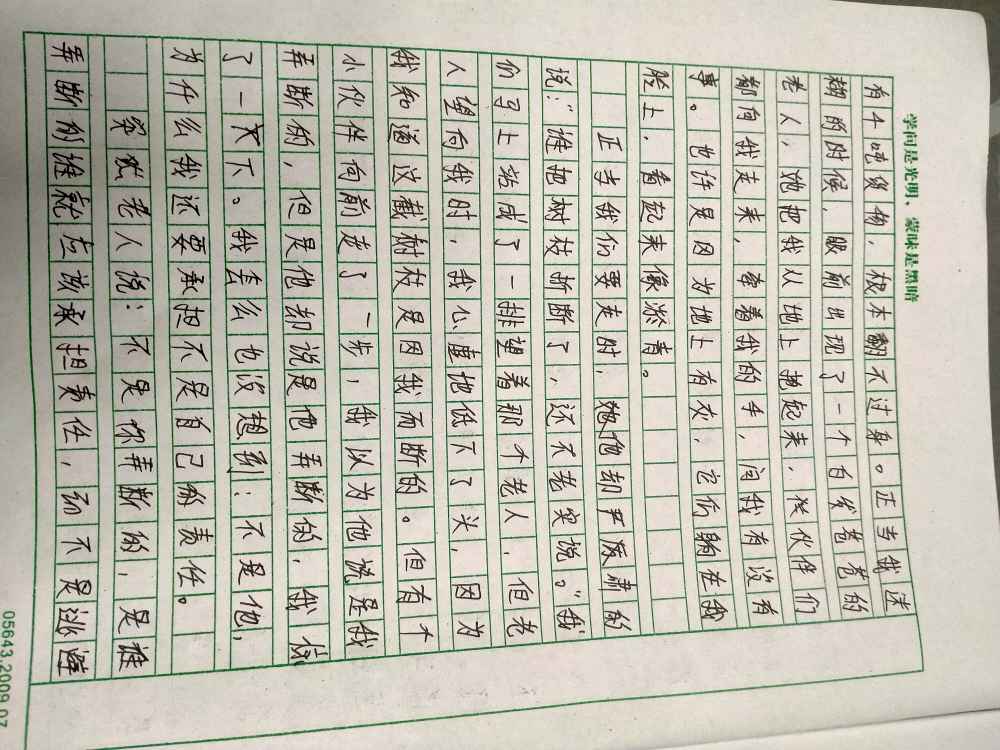 学问是光明，蒙昧是黑暗
有4吨货物，根本翻不过身。正当我迷
糊的时候，眼前出现了一个白发苍苍的
老人，她把我从地上抱起来，伙伴们
都向我走来，牵着我的手，问我有没有
事。也许是因为地上有灰，它们躺在我
脸上，看起来像淤青。
正当我们要走时，她他却严厉肃的
说：“谁把树枝折断了，还不老实说。”我
们马上站成了一排望着那个老人，但老
人望向我时，我心虚地低下了头，因为
我知道这截树枝是因我而断的。但有个
小伙伴向前走了一步，我以为他说是我
弄断的，但是他却说是他弄断的，我惊
了一天下。我怎么也没想到：不是他，
为什么我还要承担不是自己的责任。
梁 老人说：不是你弄断的，是谁
弄断的谁就应该承担责任，而不是逃避
05643.2009.07